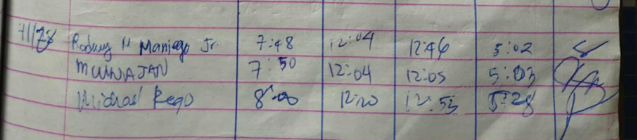 7/28 Rodney M Maniego Jr 7:48 12:04 12:46 5:02
MUNAJAN 7:50 12:04 12:05 5:03
Michael Rego 8:00 12:20 12:55 5:28